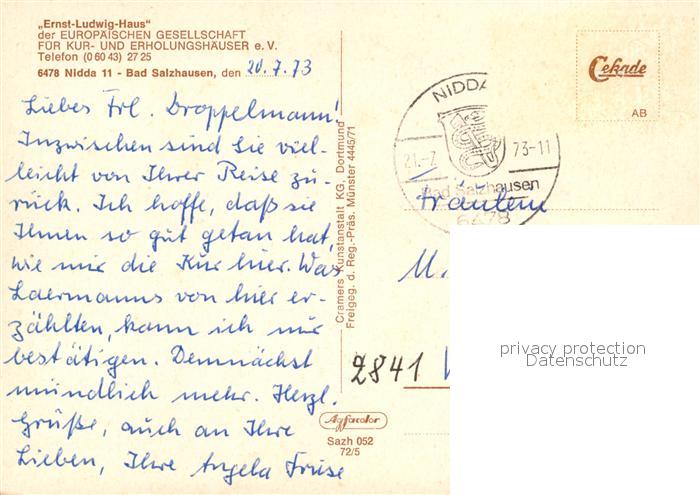 „Ernst-Ludwig-Haus"
der EUROPÄISCHEN GESELLSCHAFT
FÜR KUR- UND ERHOLUNGSHÄUSER e. V.
Telefon (0 60 43) 27 25
6478 Nidda 11 - Bad Salzhausen, den 20.7.73
Liebes Frl. Droppelmann!
Inzwischen sind Sie viel-
leicht von Ihrer Reise zu-
rück. Ich hoffe, daß sie
Ihnen so gut getan hat,
wie mir die Kur hier. Was
Laermanns von hier er-
zählten, kann ich nur
bestätigen. Demnächst
mündlich mehr. Herzl.
Grüße, auch an Ihre
Lieben, Ihre Angela Fruse
Cramers Kunstanstalt KG, Dortmund
Freigeg. d. Reg.-Präs. Münster 4445/71
Agfacolor
Sazh 052
72/5
Cekade
AB
NIDDA
21.-7. 73-11
Bad Salzhausen
6478
Fräulein
M.
2841
privacy protection
Datenschutz